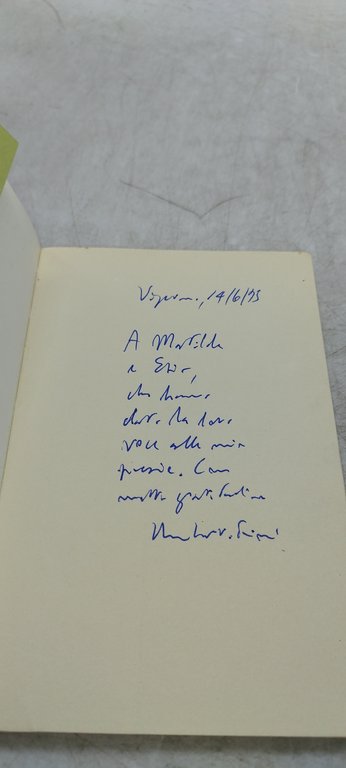 Vigevano, 14/6/95
A Matilde
e Ezio,
che hanno
dato la loro
voce alle mie
poesie. Con
molta gratitudine
Umberto Fiori